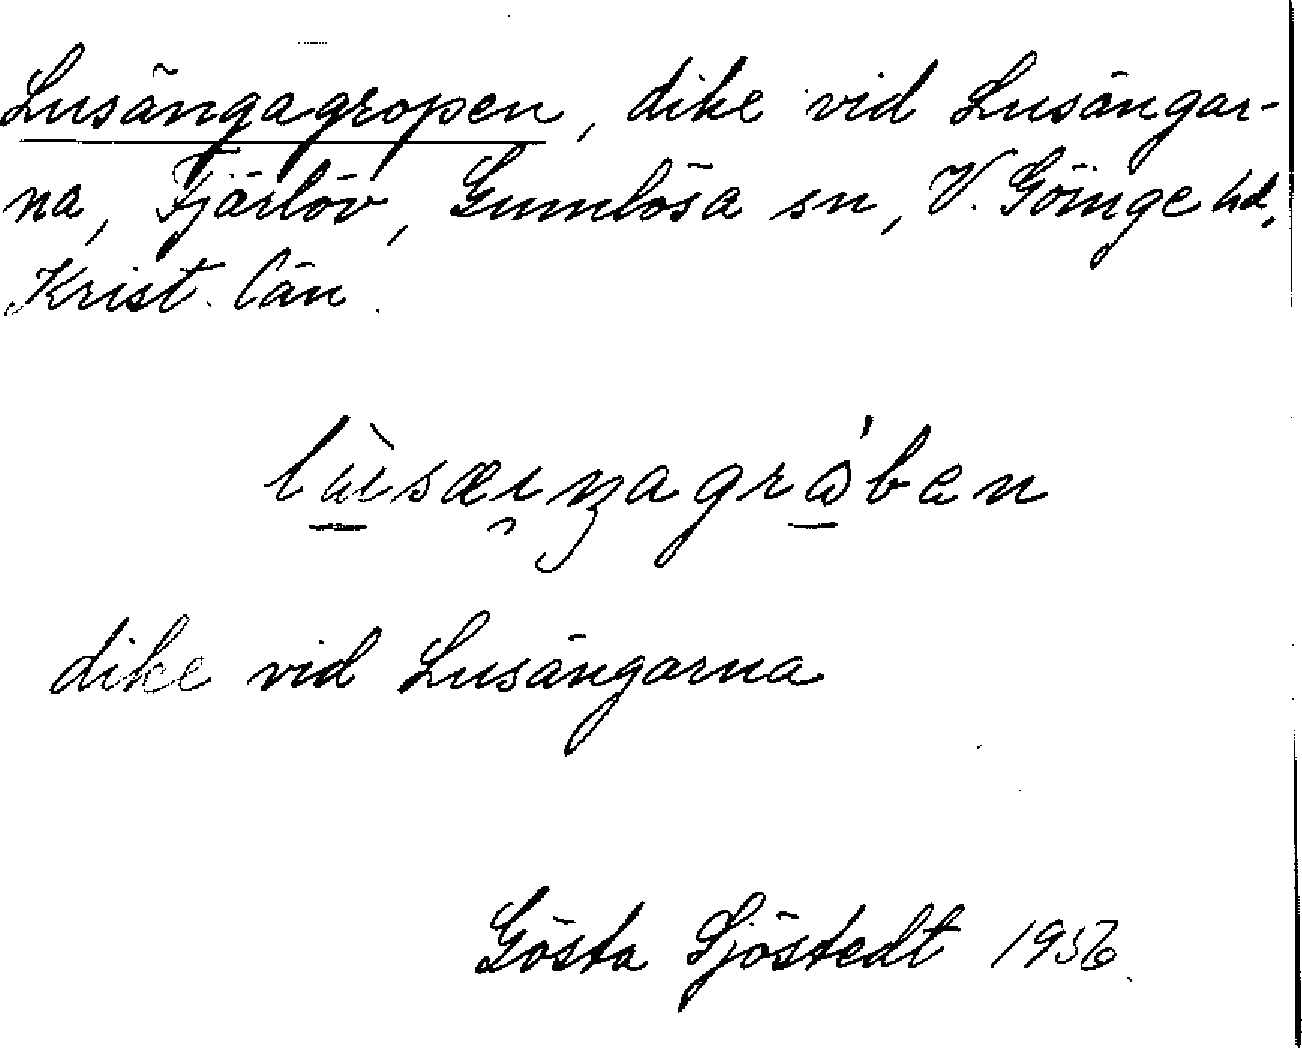 Lusängagropen, dike vid Lusängar-
na, Fjärlöv, Gumlösa sn, V. Göinge hd,
Krist. län.
dike vid Lusängarna
Gösta Sjöstedt 1956.